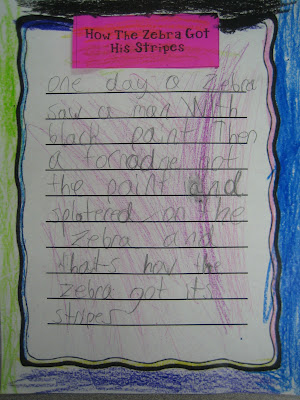 How The Zebra Got
His Stripes
one day a zebra
saw a man With
black paint Then
a tornadge got
the paint and
splatered on the
zebra and
thats how the
zebra got its
stripes